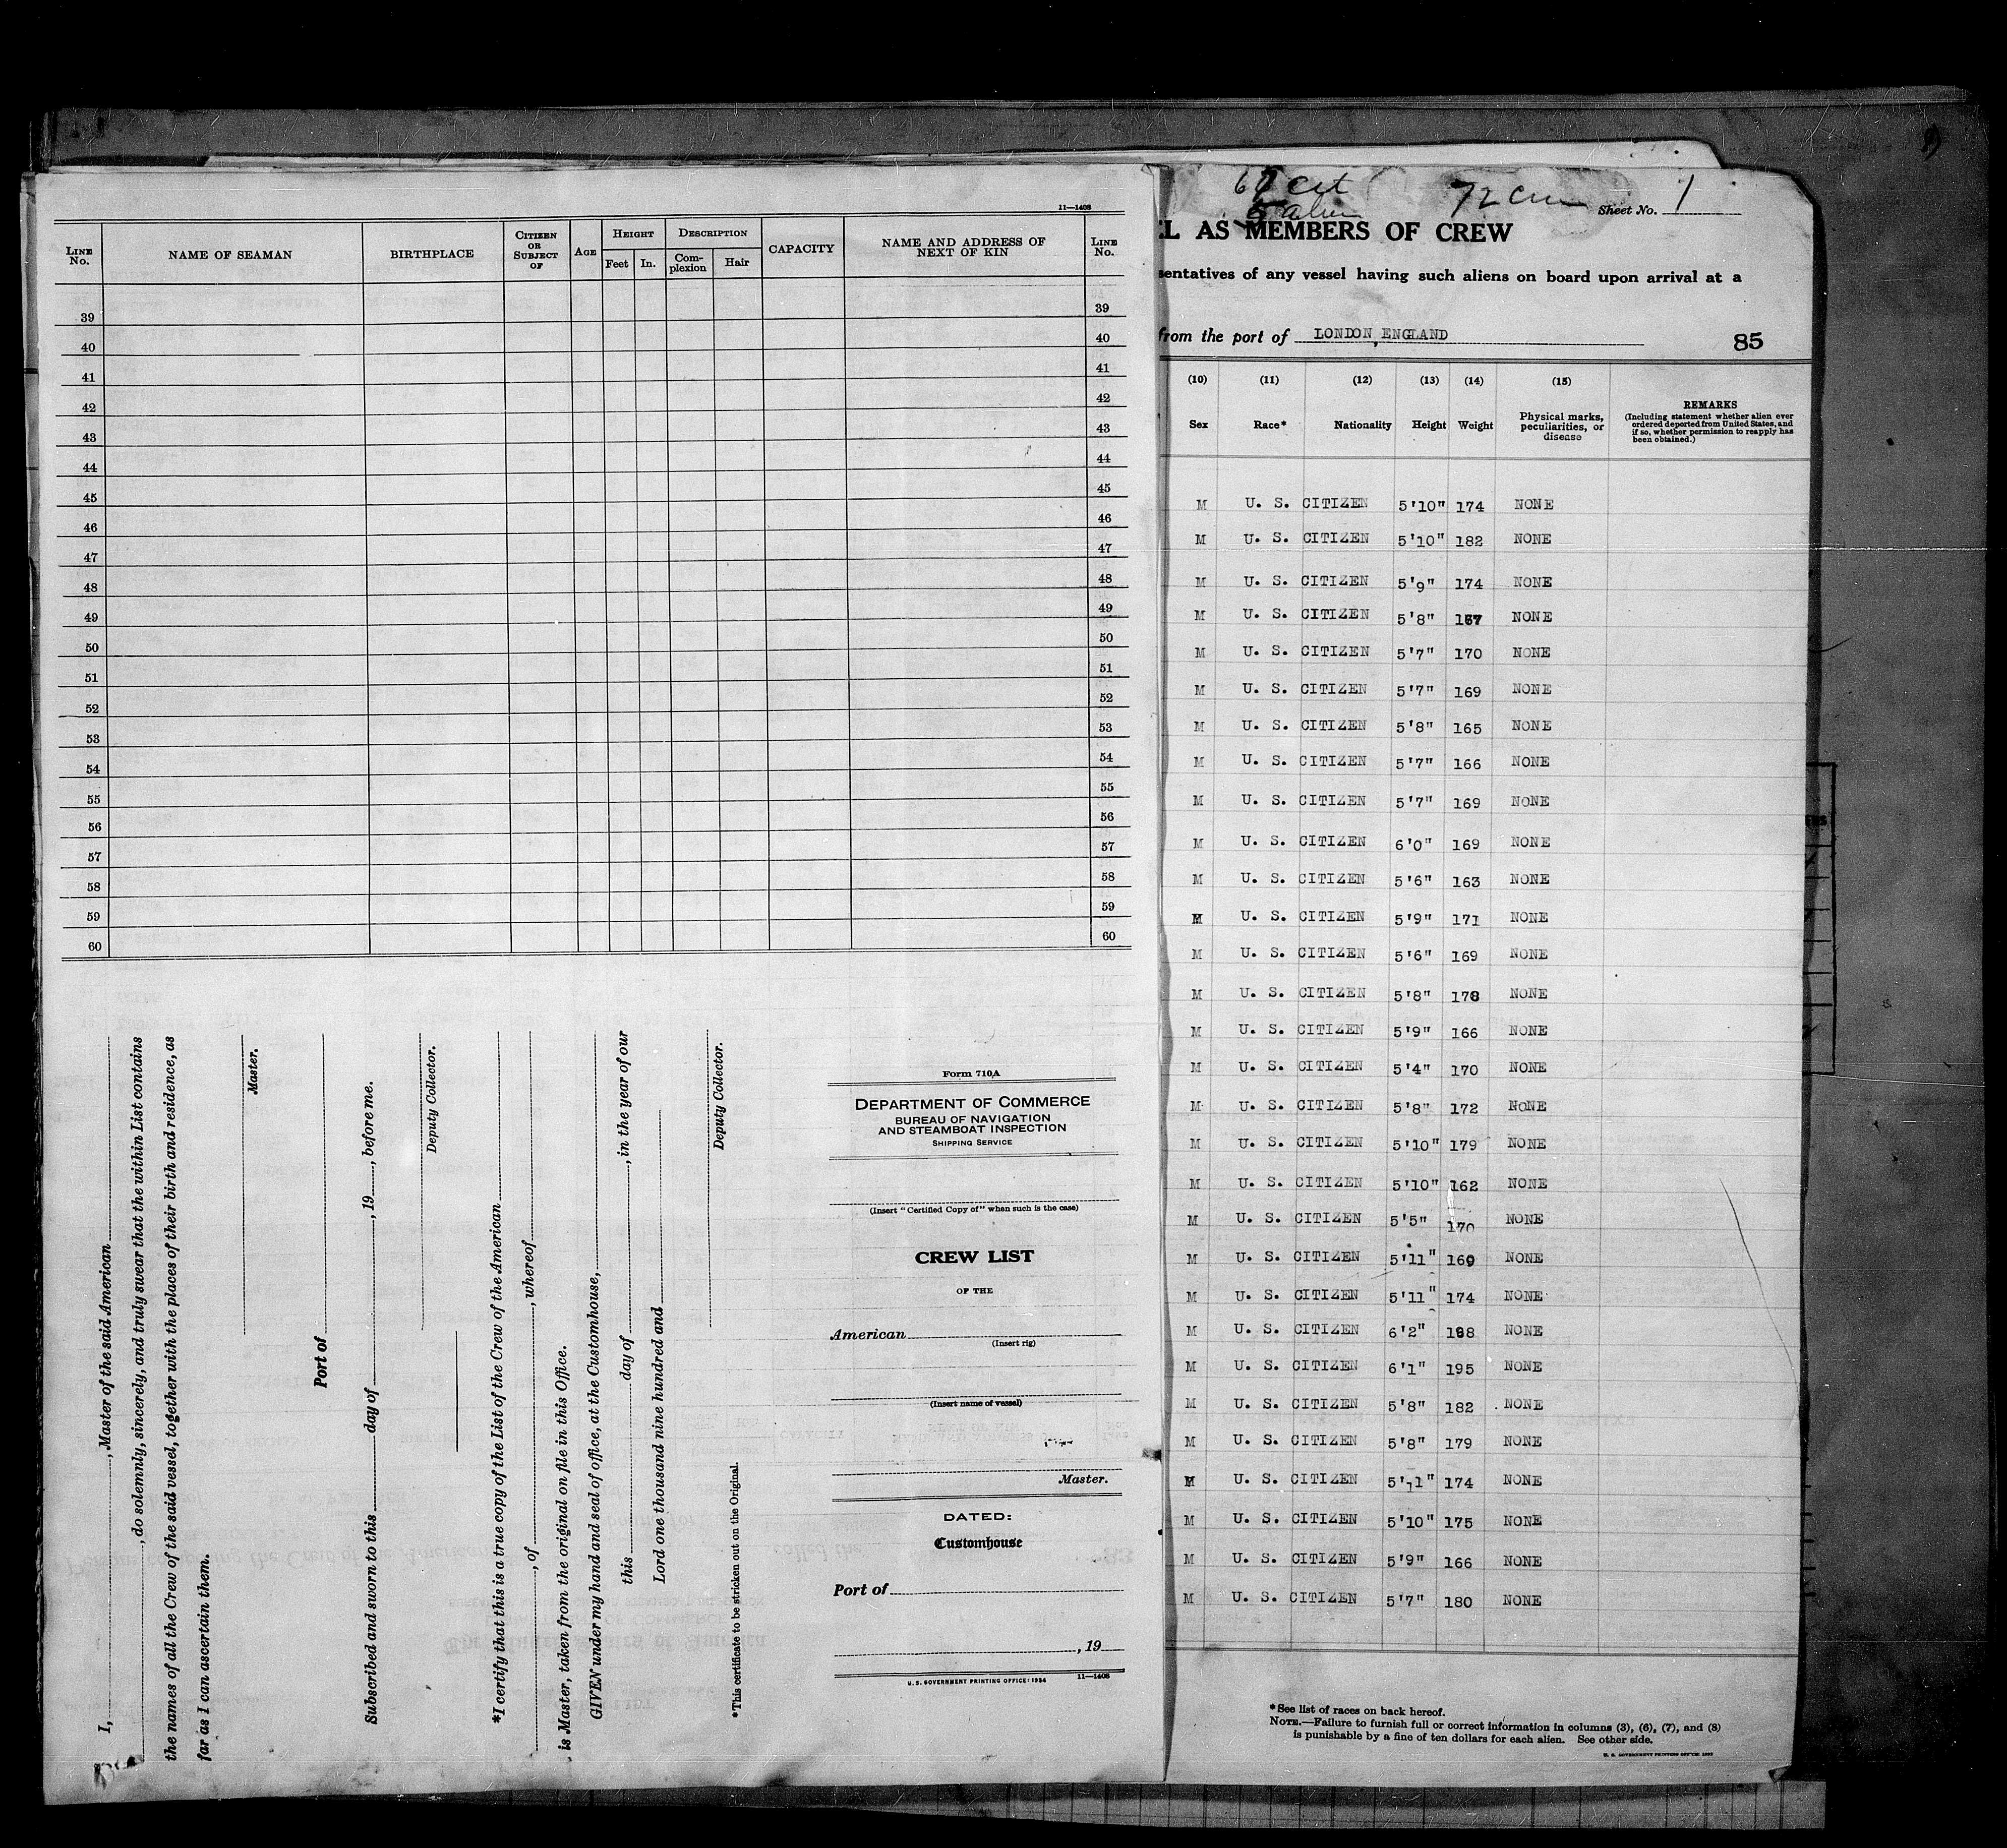 11—1408
LINE No. NAME OF SEAMAN BIRTHPLACE CITIZEN OR SUBJECT OF AGE HEIGHT Feet In. DESCRIPTION Complexion Hair CAPACITY NAME AND ADDRESS OF NEXT OF KIN LINE No.
39 39
40 40
41 41
42 42
43 43
44 44
45 45
46 46
47 47
48 48
49 49
50 50
51 51
52 52
53 53
54 54
55 55
56 56
57 57
58 58
59 59
60 60
I, , Master of the said American
, do solemnly, sincerely, and truly swear that the within List contains
the names of all the Crew of the said vessel, together with the places of their birth and residence, as
far as I can ascertain them.
Master.
Port of
Subscribed and sworn to this day of , 19 , before me.
Deputy Collector.
*I certify that this is a true copy of the List of the Crew of the American
, of , whereof
is Master, taken from the original on file in this Office.
GIVEN under my hand and seal of office, at the Customhouse,
this day of , in the year of our
Lord one thousand nine hundred and
Deputy Collector.
*This certificate to be stricken out on the Original.
Form 710A
DEPARTMENT OF COMMERCE
BUREAU OF NAVIGATION
AND STEAMBOAT INSPECTION
SHIPPING SERVICE
(Insert "Certified Copy of" when such is the case)
CREW LIST
OF THE
American
(Insert rig)
(Insert name of vessel)
Master.
DATED:
Customhouse
Port of
, 19
U. S. GOVERNMENT PRINTING OFFICE: 1934 11—1408
72 Crew Sheet No. 1
5 alien
EL AS MEMBERS OF CREW
sentatives of any vessel having such aliens on board upon arrival at a
from the port of LONDON, ENGLAND
85
(10) (11) (12) (13) (14) (15)
Sex Race* Nationality Height Weight Physical marks, peculiarities, or disease REMARKS
(Including statement whether alien ever ordered deported from United States, and if so, whether permission to reapply has been obtained.)
M U. S. CITIZEN 5'10" 174 NONE
M U. S. CITIZEN 5'10" 182 NONE
M U. S. CITIZEN 5'9" 174 NONE
M U. S. CITIZEN 5'8" NONE
M U. S. CITIZEN 5'7" 170 NONE
M U. S. CITIZEN 5'7" 169 NONE
M U. S. CITIZEN 5'8" 165 NONE
M U. S. CITIZEN 5'7" 166 NONE
M U. S. CITIZEN 5'7" 169 NONE
M U. S. CITIZEN 6'0" 169 NONE
M U. S. CITIZEN 5'6" 163 NONE
M U. S. CITIZEN 5'9" 171 NONE
M U. S. CITIZEN 5'6" 169 NONE
M U. S. CITIZEN 5'8" 178 NONE
M U. S. CITIZEN 5'9" 166 NONE
M U. S. CITIZEN 5'4" 170 NONE
M U. S. CITIZEN 5'8" 172 NONE
M U. S. CITIZEN 5'10" 179 NONE
M U. S. CITIZEN 5'10" 162 NONE
M U. S. CITIZEN 5'5" 170 NONE
M U. S. CITIZEN 5'11" 169 NONE
M U. S. CITIZEN 5'11" 174 NONE
M U. S. CITIZEN 6'2" NONE
M U. S. CITIZEN 6'1" 195 NONE
M U. S. CITIZEN 5'8" 182 NONE
M U. S. CITIZEN 5'8" 179 NONE
M U. S. CITIZEN 5'11" 174 NONE
M U. S. CITIZEN 5'10" 175 NONE
M U. S. CITIZEN 5'9" 166 NONE
M U. S. CITIZEN 5'7" 180 NONE
*See list of races on back hereof.
NOTE.—Failure to furnish full or correct information in columns (3), (6), (7), and (8)
is punishable by a fine of ten dollars for each alien. See other side.